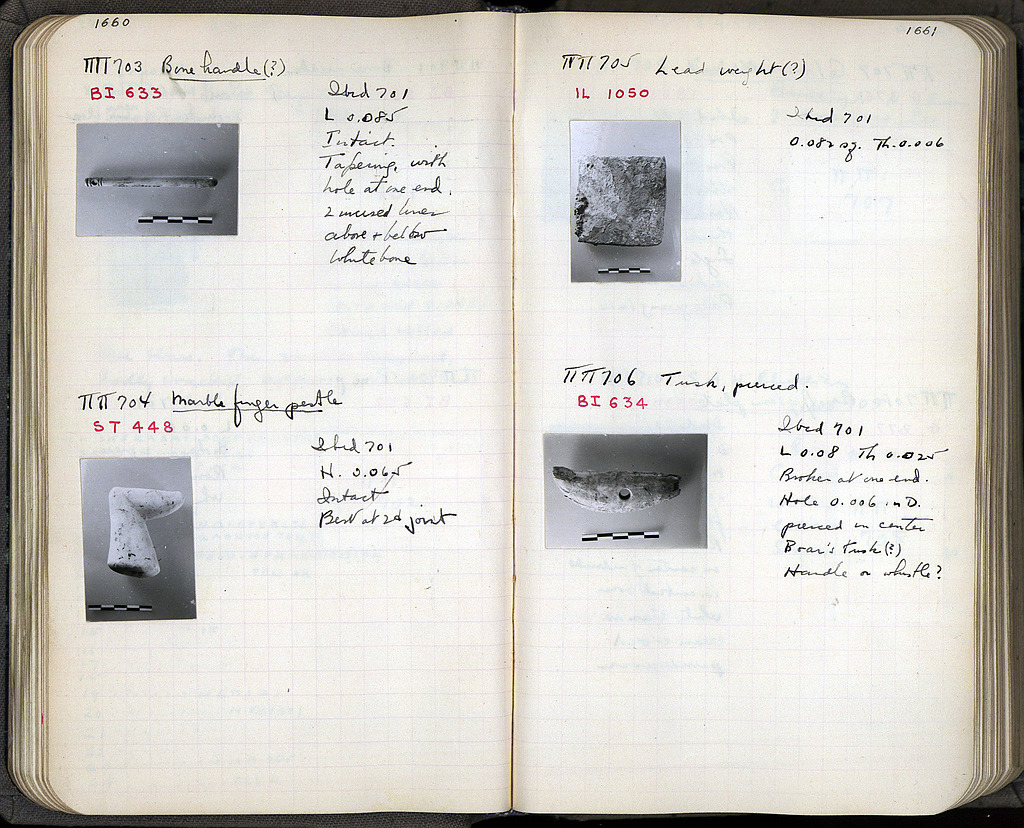 1660
ΠΠ 703 Bone handle (?)
BI 633
Ibid 701
L 0.085
Intact.
Tapering, with
hole at one end.
2 incised lines
above + below
White bone
ΠΠ 704 Marble finger pestle
ST 448
Ibid 701
H. 0.065
Intact
Bent at 2d joint
1661
ΠΠ 705 Lead weight (?)
IL 1050
Ibid 701
0.082 sq. Th. 0.006
ΠΠ 706 Tusk, pierced.
BI 634
Ibid 701
L 0.08 Th 0.025
Broken at one end.
Hole 0.006 in D.
pierced in center
Boar's tusk (?)
Handle or whistle?